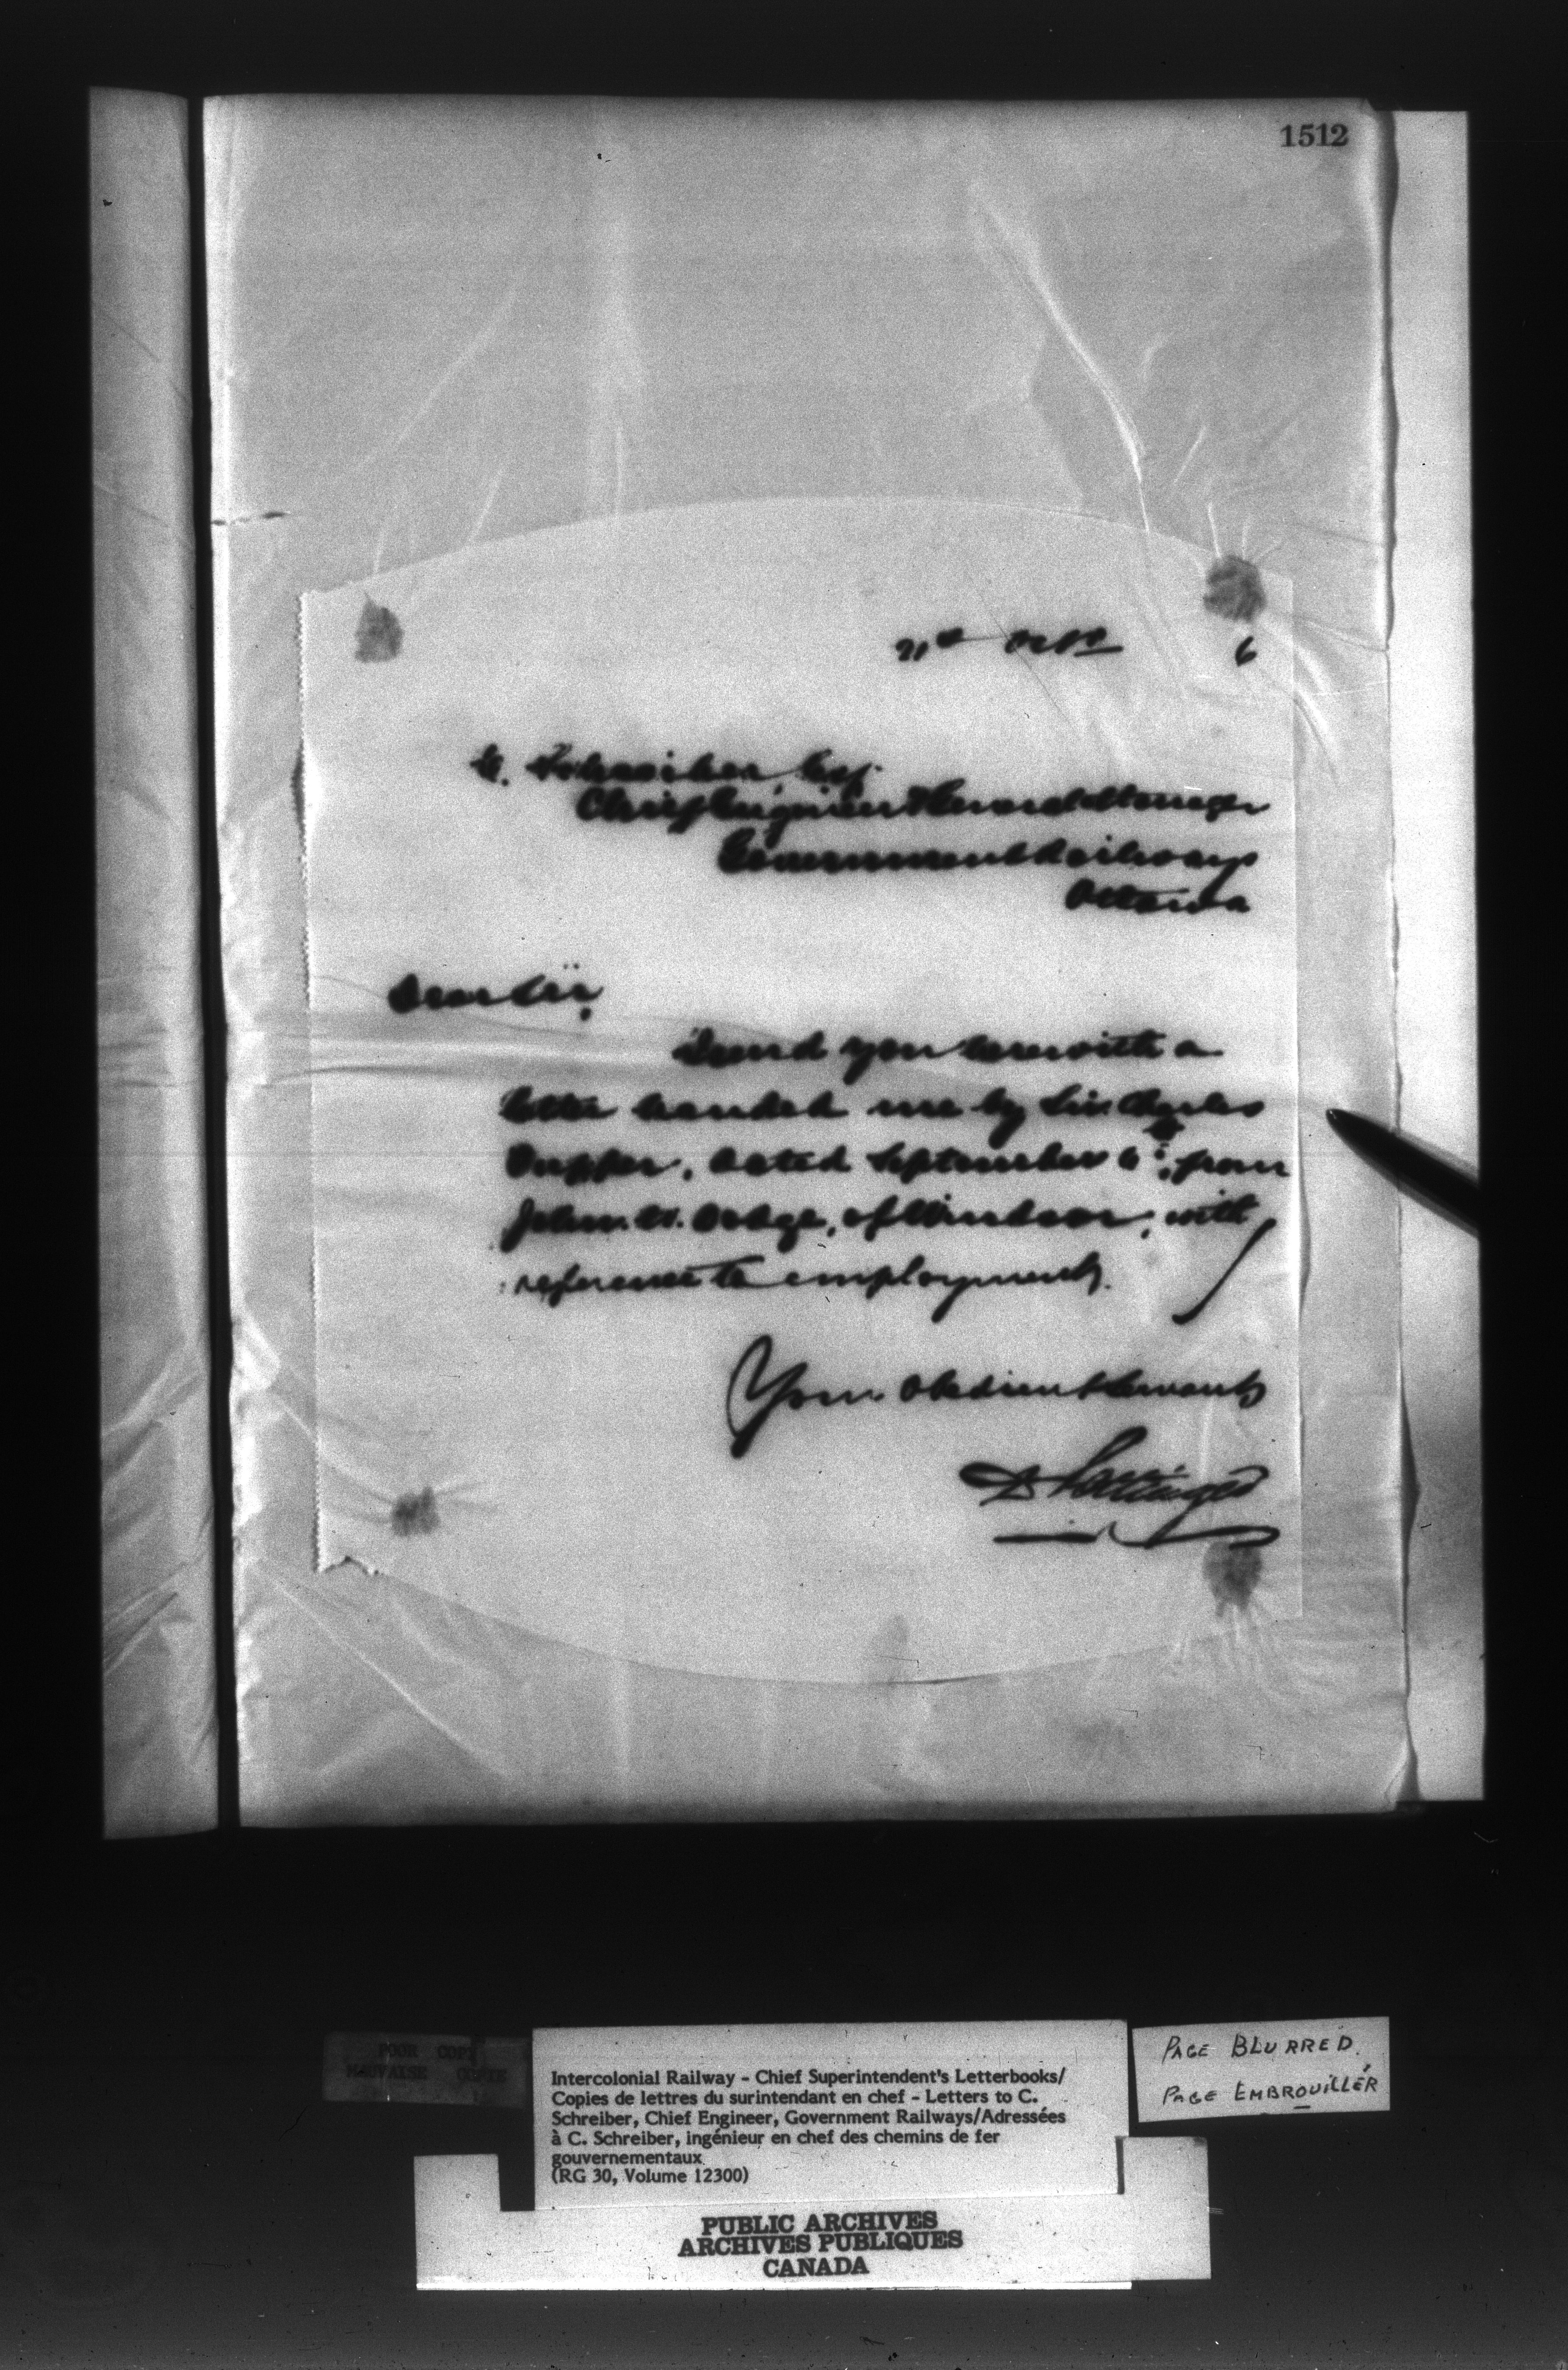 1512
Octr 6
C. Schreiber, Esq.
Chief Engineer & General Manager
Government Railways
Ottawa
Dear Sir,
I send you herewith a
letter handed me by Sir Charles
Tupper, dated September 6th, from
John W. Dodge, of Windsor, with
reference to employment.
Your Obedient Servant,
D Pottinger
POOR COPY
MAUVAISE COPIE
Intercolonial Railway - Chief Superintendent's Letterbooks/
Copies de lettres du surintendant en chef - Letters to C.
Schreiber, Chief Engineer, Government Railways/Adressées
à C. Schreiber, ingénieur en chef des chemins de fer
gouvernementaux
(RG 30, Volume 12300)
PAGE BLURRED.
PAGE EMBROUILLÉR
PUBLIC ARCHIVES
ARCHIVES PUBLIQUES
CANADA